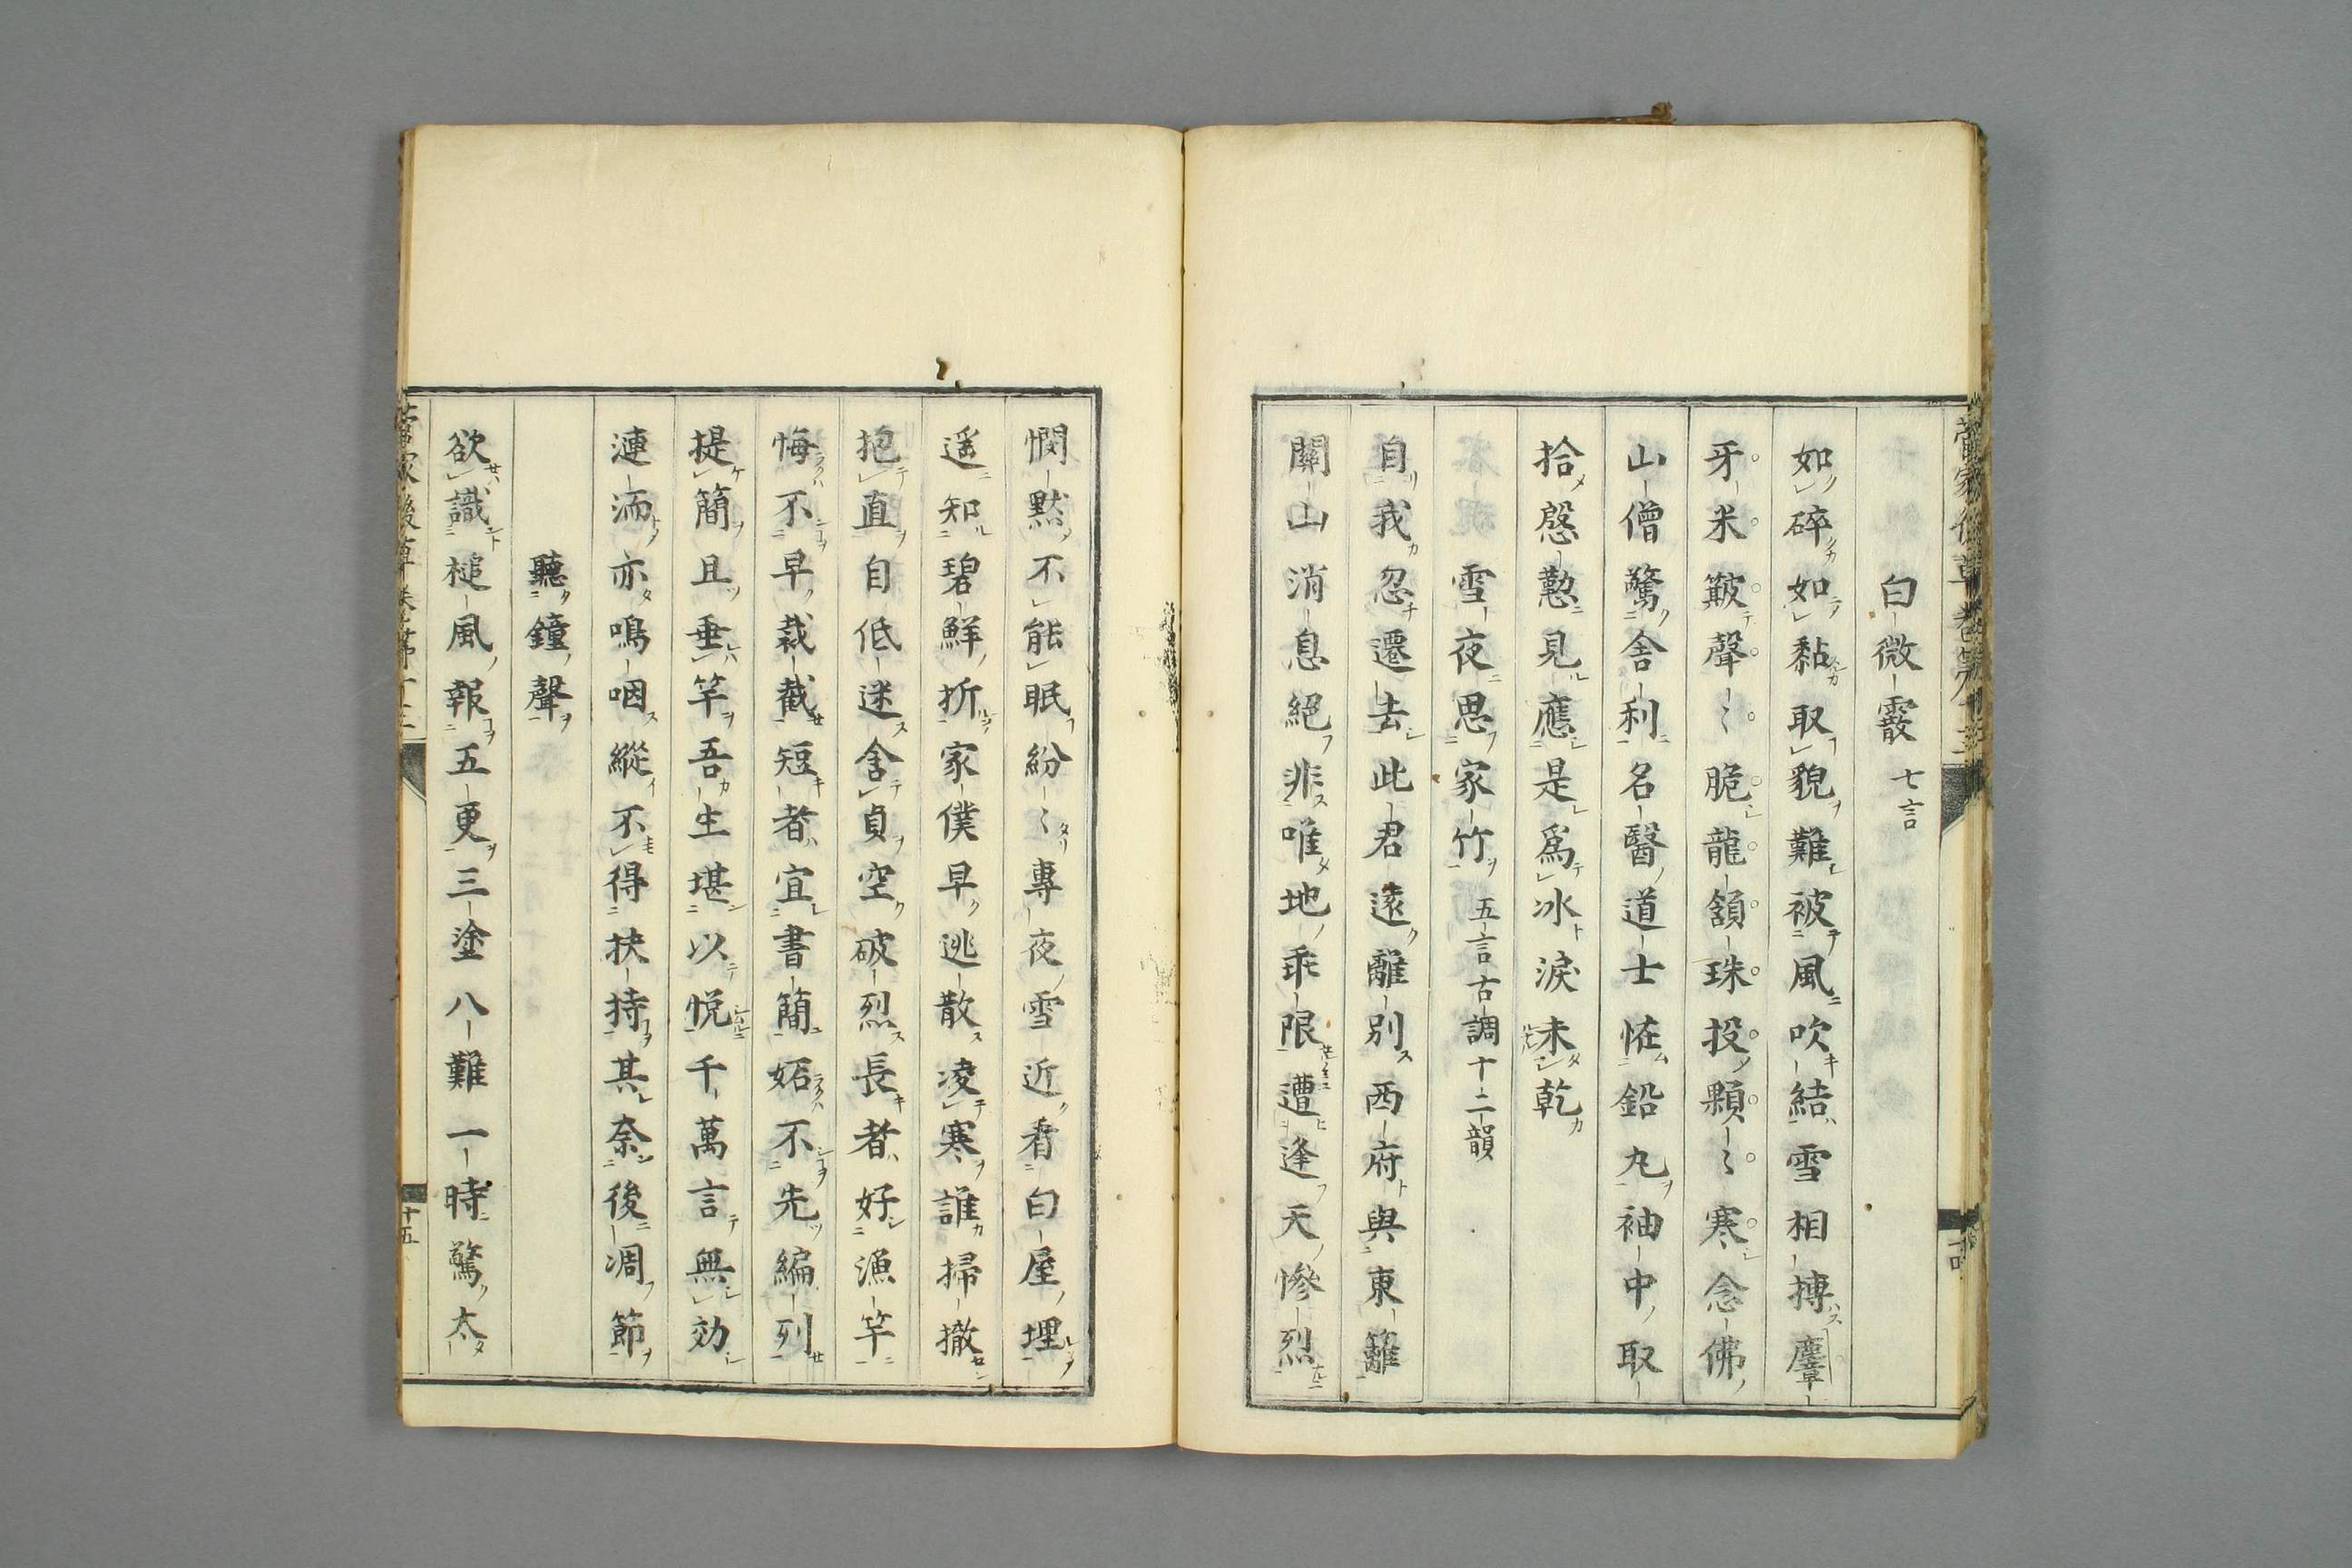 白微霰 七言
如碎如黏取貌難被風吹結雪相摶麞
牙米簸聲〻脆龍頷珠投顆〻寒念佛
山僧驚舍利名醫道士恠鉛丸袖中取
拾慇懃見應是爲冰淚未乾
雪夜思家竹 五言古調十二韻
自我忽遷去此君遠離別西府與東籬
關山消息絕非唯地乖限遭逢天慘烈
憫默不能眠紛〻專夜雪近看白屋埋
遥知碧鮮折家僕早逃散凌寒誰掃撤
抱直自低迷含貞空破烈長者好漁竿
悔不早裁截短者宜書簡妬不先編列
提簡且垂竿吾生堪以悦千萬言無効
漣洏亦鳴咽縱不得扶持其奈後凋節
聽鐘聲
欲識槌風報五更三塗八難一時驚太
菅家後草卷第十三
十五